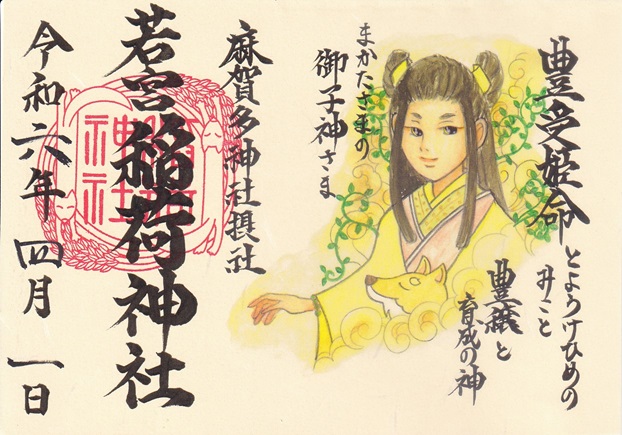 豊受姫命
とようけひめの
みこと
豊穣と
育成の神
まかたさまの
御子神さま
麻賀多神社摂社
若宮稲荷神社
令和六年 四月 一日